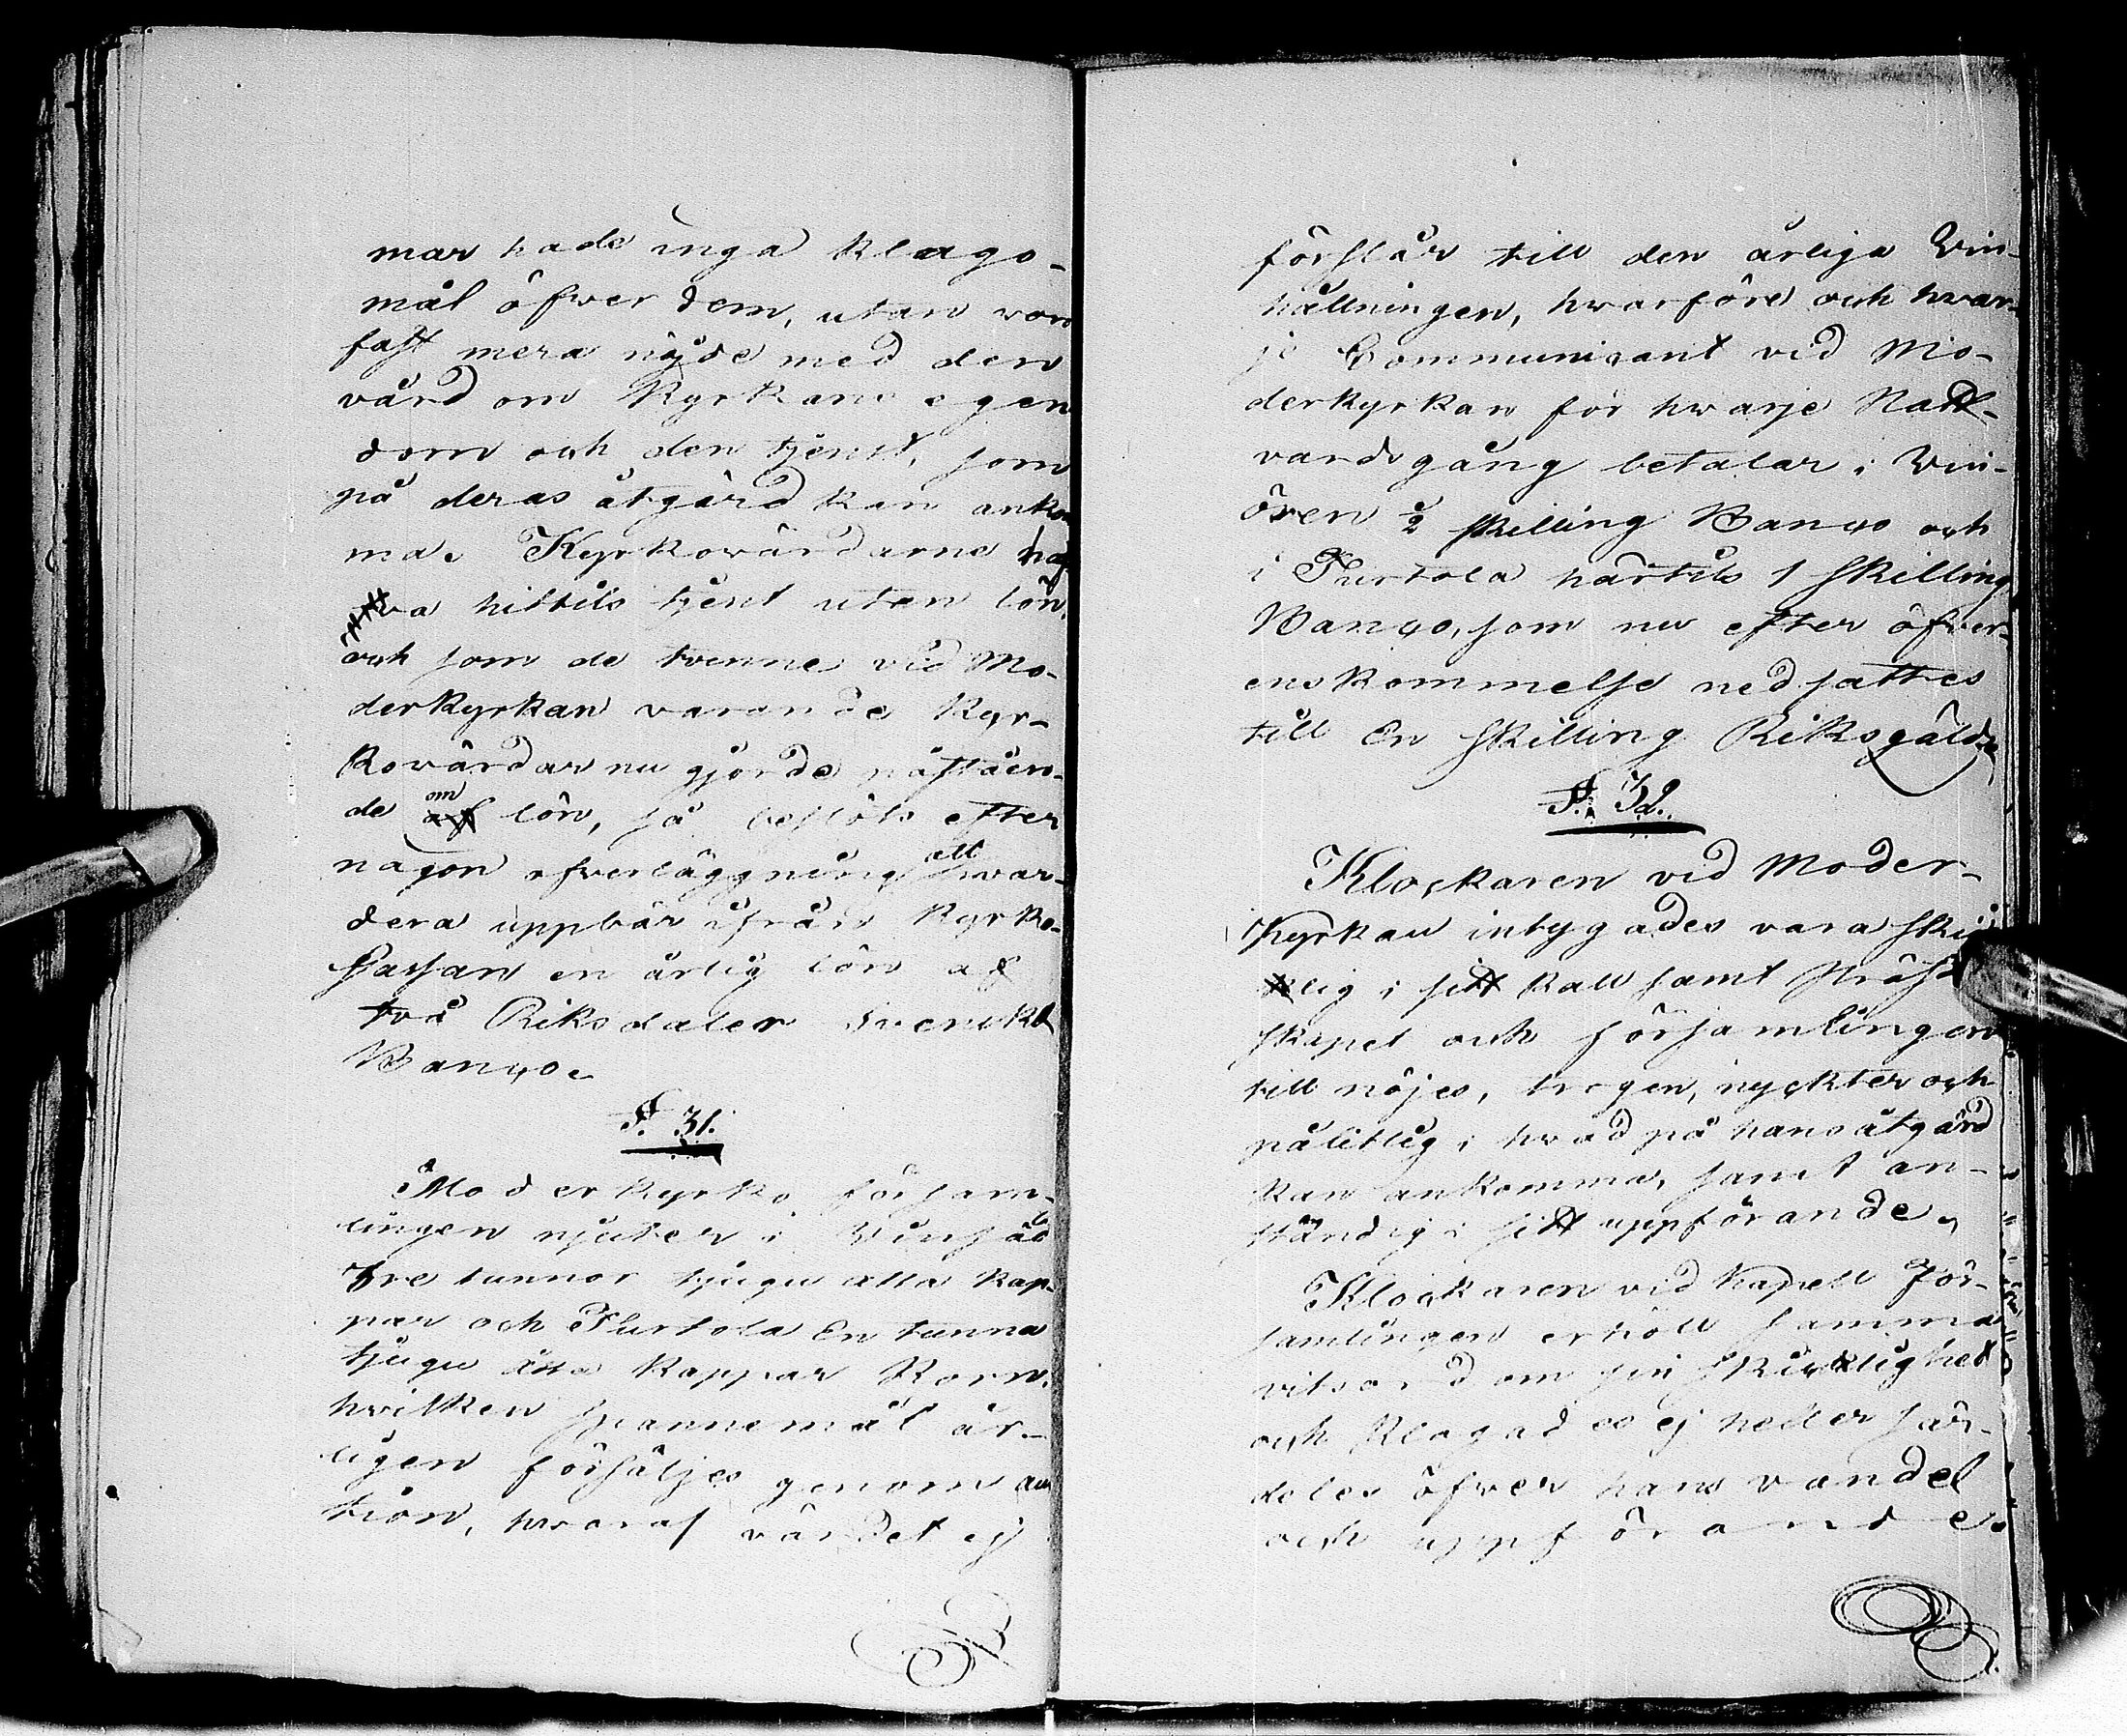 mar hade inga klago-
mål öfwer dem, utan voro
fast mera nöjde med den
vård om Kyrkans egen
dom och den tjenst, som
på deras åtgärd kan anko
ma. Kyrkowärdarne haf
va hittils tjent utan lön,
och som de tvenne vid Mo-
derkyrkan varande Kyr-
kowärdar nu gjorde påståen-
de om lön, så beslöts efter
någon öfverläggning att hvar-
dera uppbär ifrån Kyrko-
Cassan en årlig lön af
två Riksdaler Svenskt
Banco.
§. 31.
Moderkyrko försam-
lingen njuter i Vinsäd
Tre tunnor tjugu åtta kap-
par och Turtola En tunna
tjugu åtta Kappar Korn,
hvilken spannemål år-
ligen försäljes genom auc
tion, hwaraf värdet ej
förslår till den årliga Vin-
hållningen, hwarföre och hwar-
je Communicant vid Mo-
derkyrkan för hwarje Natt-
vardsgång betalar i Vin-
ören ½ skilling Banco och
i Turtola härtils 1 skilling
Banco, som nu efter öfver-
enskommelse nedsattes
till En skilling Riksgälds
§. 32.
Klockaren vid Moder-
Kyrkan intygades vara skic
klig i sitt kall samt Präst
skapet och församlingen
till nöjes, trogen, nyckter och
pålitlig i hvad på hans åtgärd
kan ankomma, samt an-
ständig i sitt uppförande.
Klockaren vid Kapell För-
samlingen erhöll samma
vitsord om sin skicklighet
och klagades ej heller sär-
deles öfver hans vandel
och uppförande.